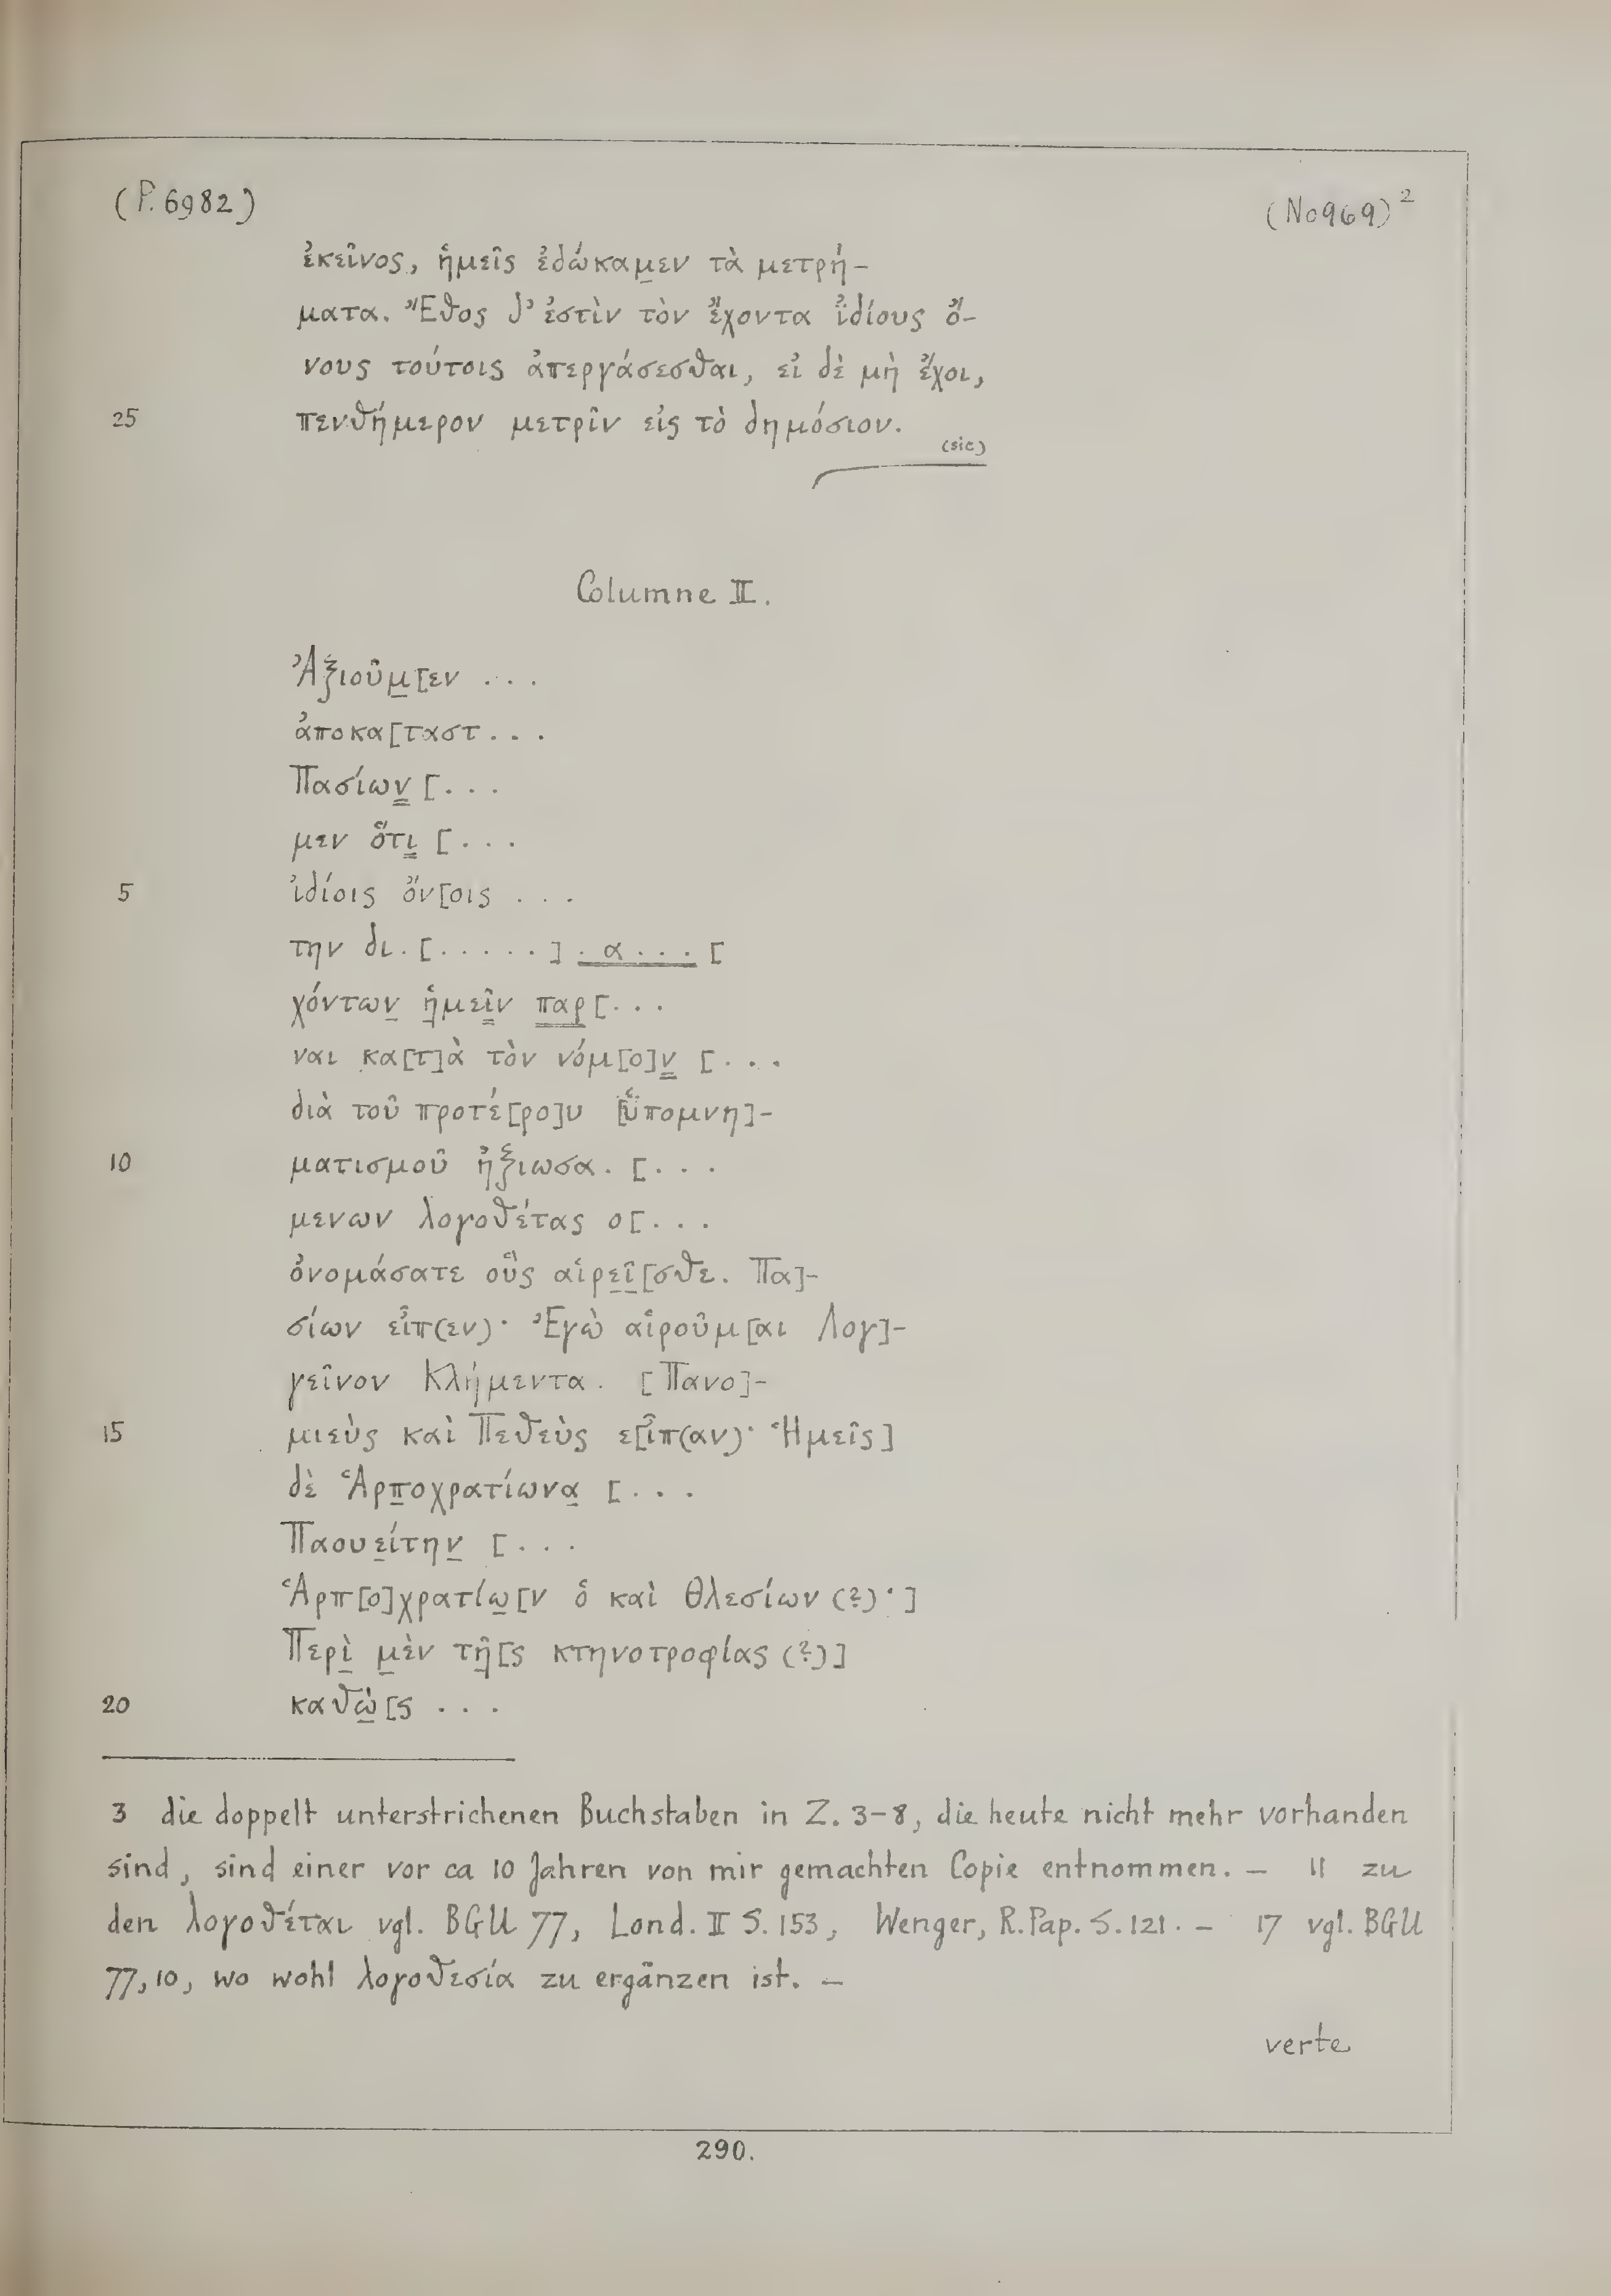 (P. 6982)
(No 969)²
ἐκεῖνος, ἡμεῖς ἐδώκαμεν τὰ μετρή-
ματα. Ἔθος δ' ἐστὶν τὸν ἔχοντα ἰδίους ὄ-
νους τούτοις ἀπεργάσεσθαι, εἰ δὲ μὴ ἔχοι,
25 πενθήμερον μετρῖν εἰς τὸ δημόσιον.
(sic)
Columne II.
Ἀξιοῦμ[εν . . .
ἀποκα[ταστ . . .
Πασίων [. . .
μεν ὅτι [. . .
5 ἰδίοις ὄν[οις . . .
την δι . [ . . . . . ] . α . . . [
χόντων ἡμεῖν παρ[. . .
ναι κα[τ]ὰ τὸν νόμ[ο]ν [. . .
διὰ τοῦ προτέ[ρο]υ [ὑπομνη]-
10 ματισμοῦ ἠξιωσα . [. . .
μενων λογοθέτας ο[. . .
ὀνομάσατε οὓς αἱρεῖ[σθε. Πα]-
σίων εἶπ(εν)· Ἐγὼ αἱροῦμ[αι Λογ]-
γεῖνον Κλήμεντα . [Πανο]-
15 μιεὺς καὶ Πεθεὺς ε[ἶπ(αν)· Ἡμεῖς]
δὲ Ἁρποχρατίωνα [. . .
Παουείτην [. . .
Ἁρπ[ο]χρατίω[ν ὁ καὶ Θλεσίων (?)·]
Περὶ μὲν τῆ[ς κτηνοτροφίας (?)]
20 καθὼ[ς . . .
3 die doppelt unterstrichenen Buchstaben in Z. 3-8, die heute nicht mehr vorhanden
sind, sind einer vor ca 10 Jahren von mir gemachten Copie entnommen. — 11 zu
den λογοθέται vgl. BGU 77, Lond. II S. 153, Wenger, R. Pap. S. 121. — 17 vgl. BGU
77, 10, wo wohl λογοθεσία zu ergänzen ist. —
verte
290.